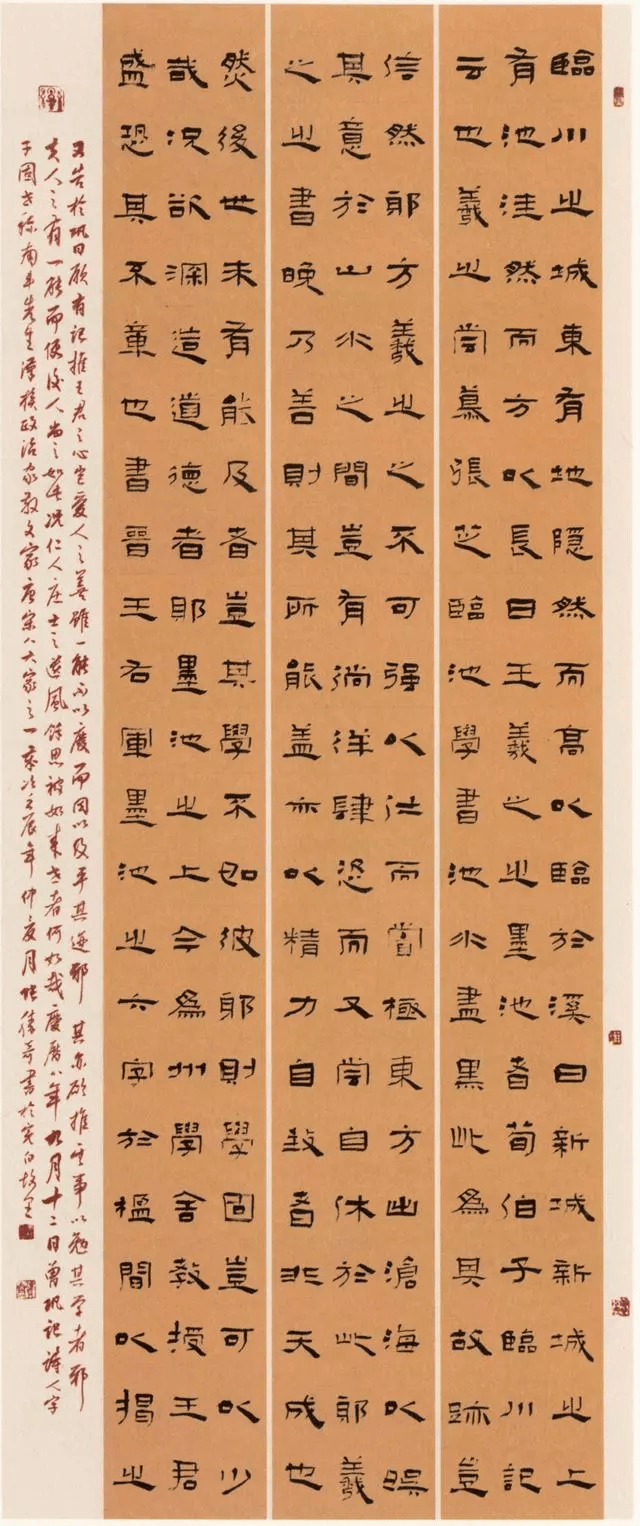 臨川之城東有地隱然而高以臨於溪曰新城新城之上
有池洼然而方以長曰王羲之之墨池者荀伯子臨川記
云也羲之嘗慕張芝臨池學書池水盡黑此爲其故跡豈
信然耶方羲之之不可强以仕而嘗極東方出滄海以娱
其意於山水之間豈有徜徉肆恣而又嘗自休於此耶羲
之之書晚乃善則其所能盖亦以精力自致者非天成也
然後世未有能及者豈其學不如彼耶則學固豈可以少
哉況欲深造道德者耶墨池之上今爲州學舍教授王君
盛恐其不章也書晉王右軍墨池之六字於楹間以揭之
又告於巩曰願有記推王君之心豈愛人之善雖一能不以廢而因以及乎其迹邪 其亦欲推其事以勉其学者邪
夫人之有一能而使後人尚之如此况仁人庄士之遺風餘思被於来世者何如哉慶曆八年九月十二日曾巩記 人字
子固世称南丰先生漢族政治家散文家唐宋八大家之一歲次壬辰年仲夏月 書於